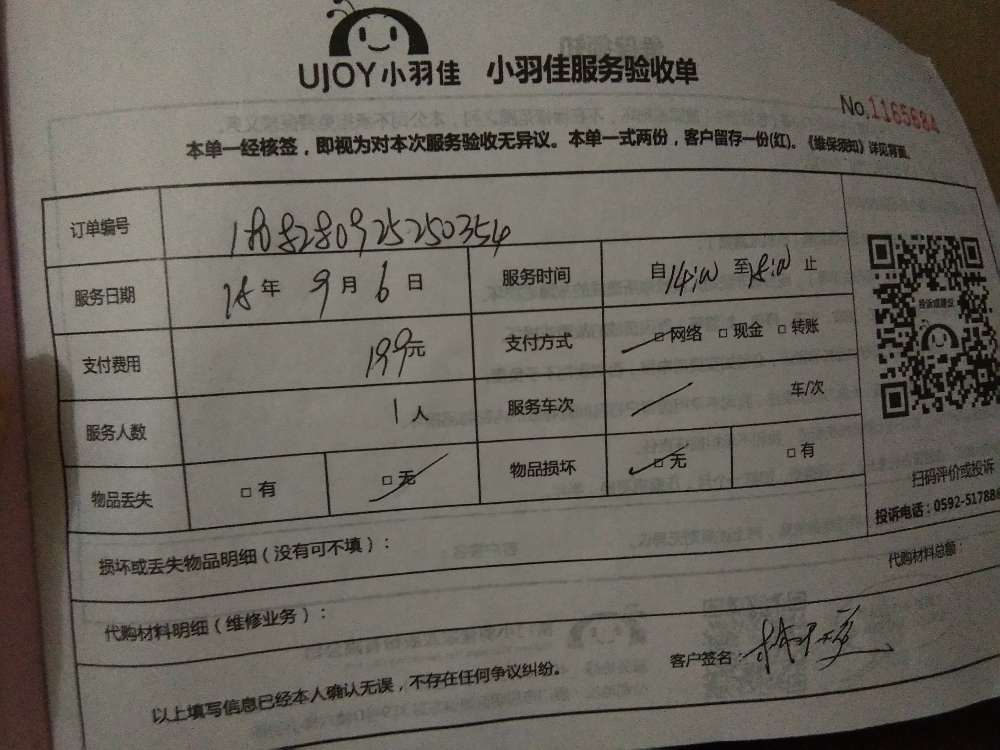 UJOY小羽佳 小羽佳服务验收单
No.1165684
本单一经核签，即视为对本次服务验收无异议。本单一式两份，客户留存一份(红)。《维保须知》详见背面。
订单编号
服务日期 18年 9月 6日 服务时间 自14:00 至18:00 止
支付费用 199元 支付方式 □网络 □现金 □转账
服务人数 1人 服务车次 车/次
物品丢失 □有 □无 物品损坏 □无 □有
投诉或建议
扫码评价或投诉
投诉电话：0592-517888
损坏或丢失物品明细（没有可不填）：
代购材料明细（维修业务）： 代购材料总额：
以上填写信息已经本人确认无误，不存在任何争议纠纷。 客户签名：